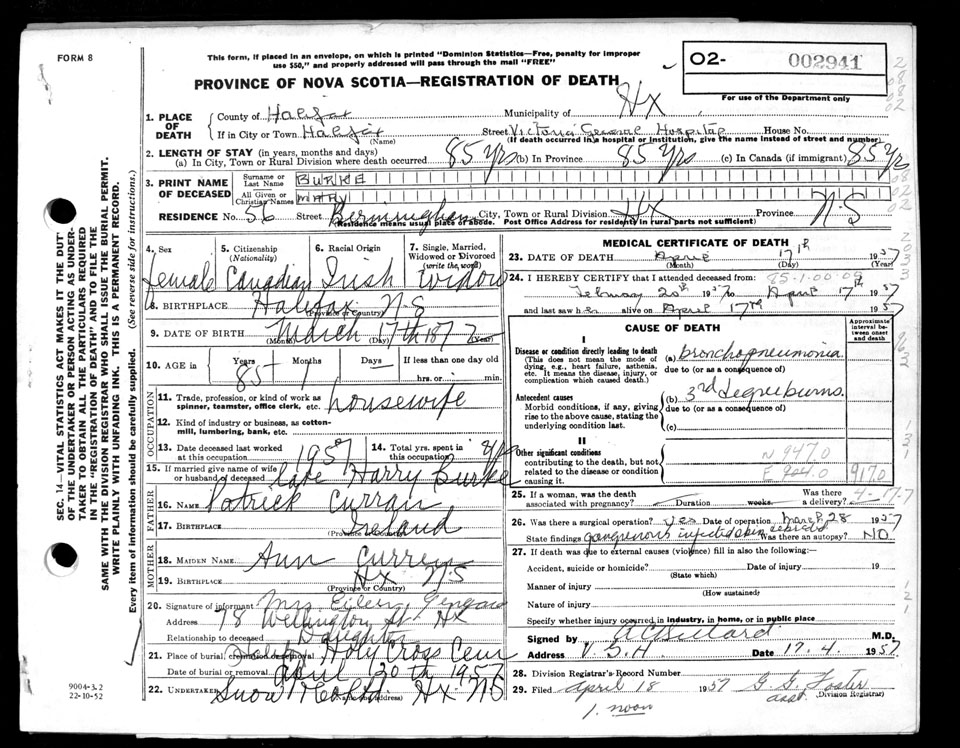 FORM 8
This form, if placed in an envelope, on which is printed "Dominion Statistics—Free, penalty for improper
use $50," and properly addressed will pass through the mail "FREE"
PROVINCE OF NOVA SCOTIA—REGISTRATION OF DEATH
O2- 002941
For use of the Department only
SEC. 14—VITAL STATISTICS ACT MAKES IT THE DUTY
OF THE UNDERTAKER OR PERSON ACTING AS UNDER-
TAKER TO OBTAIN ALL THE PARTICULARS REQUIRED
IN THE "REGISTRATION OF DEATH" AND TO FILE THE
SAME WITH THE DIVISION REGISTRAR WHO SHALL ISSUE THE BURIAL PERMIT.
WRITE PLAINLY WITH UNFADING INK. THIS IS A PERMANENT RECORD.
Every item of information should be carefully supplied. (See reverse side for instructions.)
1. PLACE OF DEATH
County of Halifax Municipality of Hx
If in City or Town Halifax Street Victoria General Hospital House No.
(Name) (If death occurred in a hospital or institution, give the name instead of street and number)
2. LENGTH OF STAY (in years, months and days)
(a) In City, Town or Rural Division where death occurred 85 yrs (b) In Province 85 yrs (c) In Canada (if immigrant) 85 yrs
3. PRINT NAME OF DECEASED
Surname or Last Name BURKE
All Given or Christian Names MARY
RESIDENCE No. 56 Street Berminingham City, Town or Rural Division Hx Province N-S
(Residence means usual place of abode. Post Office Address for residents in rural parts not sufficient)
4. Sex Female
5. Citizenship (Nationality) Canadian
6. Racial Origin Irish
7. Single, Married, Widowed or Divorced (write the word) Widow
8. BIRTHPLACE Halifax N-S
(Province or Country)
9. DATE OF BIRTH March 17th 1877
(Month) (Day) (Year)
10. AGE in Years 85 Months 1 Days — If less than one day old
hrs. or min.
OCCUPATION
11. Trade, profession, or kind of work as
spinner, teamster, office clerk, etc. housewife
12. Kind of industry or business, as cotton-
mill, lumbering, bank, etc.
13. Date deceased last worked
at this occupation 1957
14. Total yrs. spent in
this occupation yrs
15. If married give name of wife
or husband of deceased late Harry Burke
FATHER
16. NAME Patrick Curran
17. BIRTHPLACE Ireland
MOTHER
18. MAIDEN NAME Ann Curren
19. BIRTHPLACE Hx N-S
(Province or Country)
20. Signature of informant Mrs Eileen
Address 78 Wellington St Hx
Relationship to deceased Daughter
21. Place of burial, cremation or removal Holy Cross Cem
Date of burial or removal April 20th 1957
22. UNDERTAKER Snow Hx N-S
(Name and Address)
9004-3.2
22-10-52
MEDICAL CERTIFICATE OF DEATH
23. DATE OF DEATH April 17th 1957
(Month) (Day) (Year)
24. I HEREBY CERTIFY that I attended deceased from:
February 20th 1957 to April 17th 1957
and last saw her alive on April 17th 1957
CAUSE OF DEATH
Approximate interval between onset and death
I
Disease or condition directly leading to death
(This does not mean the mode of dying, e.g., heart failure, asthenia. etc. It means the disease, injury, or complication which caused death.)
(a) Bronchopneumonia
due to (or as a consequence of)
Antecedent causes
Morbid conditions, if any, giving rise to the above cause, stating the underlying condition last.
(b) 3rd degree burns.
due to (or as a consequence of)
(c)
II
Other significant conditions
contributing to the death, but not related to the disease or condition causing it.
N 947.0
9170
25. If a woman, was the death
associated with pregnancy? Duration weeks. Was there a delivery?
26. Was there a surgical operation? yes Date of operation March 28 1957
State findings gangrenous infected skin Was there an autopsy? NO
27. If death was due to external causes (violence) fill in also the following:—
Accident, suicide or homicide? Date of injury 19
(State which)
Manner of injury
(How sustained)
Nature of injury
Specify whether injury occurred in industry, in home, or in public place
Signed by M.D.
Address V G H Date 17.4. 1957
28. Division Registrar's Record Number
29. Filed April 18 1957 G. G. Foster
(Division Registrar)
asst
1. noon